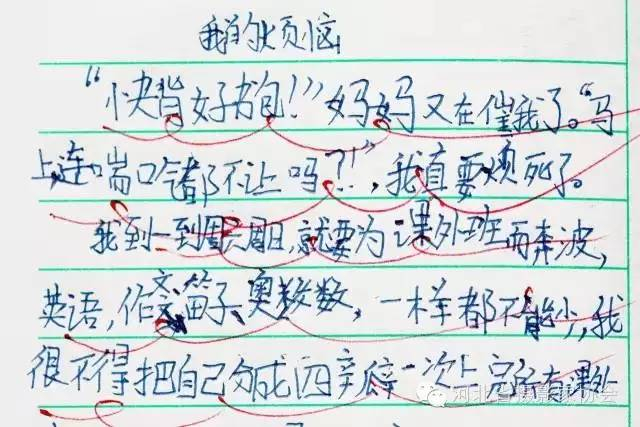 我的烦恼
“快背好书包!”妈妈又在催我了。“马
上,连喘口气都不让吗?!”,我直要烦死了。
我到一到周六周日,就要为课外班而奔波,
英语,作文,笛子,奥数,一样都不能少,我
很不得把自己分成四 一次上完所有课外
河北省摄影家协会